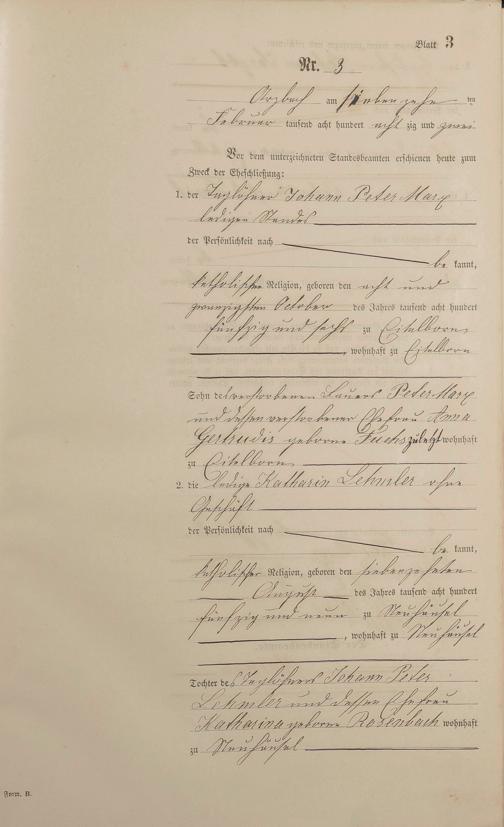 Blatt 3
Nr. 3
Arzbach am siebenzehn ten
Februar tausend acht hundert acht zig und zwei
Vor dem unterzeichneten Standesbeamten erschienen heute zum
Zweck der Eheschließung:
1. der Taglöhner Johann Peter Marx
ledigen Standes
der Persönlichkeit nach
be kannt,
katholischer Religion, geboren den acht und
zwanzigsten October des Jahres tausend acht hundert
fünfzig und sechs zu Eitelborn
, wohnhaft zu Eitelborn
Sohn des verstorbenen Bauers Peter Marx
und dessen verstorbener Ehefrau Anna
Gertrudis geborne Fuchs zuletzt wohnhaft
zu Eitelborn
2. die ledige Katharin Lehmler ohne
Geschäft
der Persönlichkeit nach
be kannt,
katholischer Religion, geboren den siebenzehnten
August des Jahres tausend acht hundert
fünfzig und neun zu Neuhäusel
, wohnhaft zu Neuhäusel
Tochter des Taglöhners Johann Peter
Lehmler und dessen Ehefrau
Katharina geborne Rosenbach wohnhaft
zu Neuhäusel
Form. B.